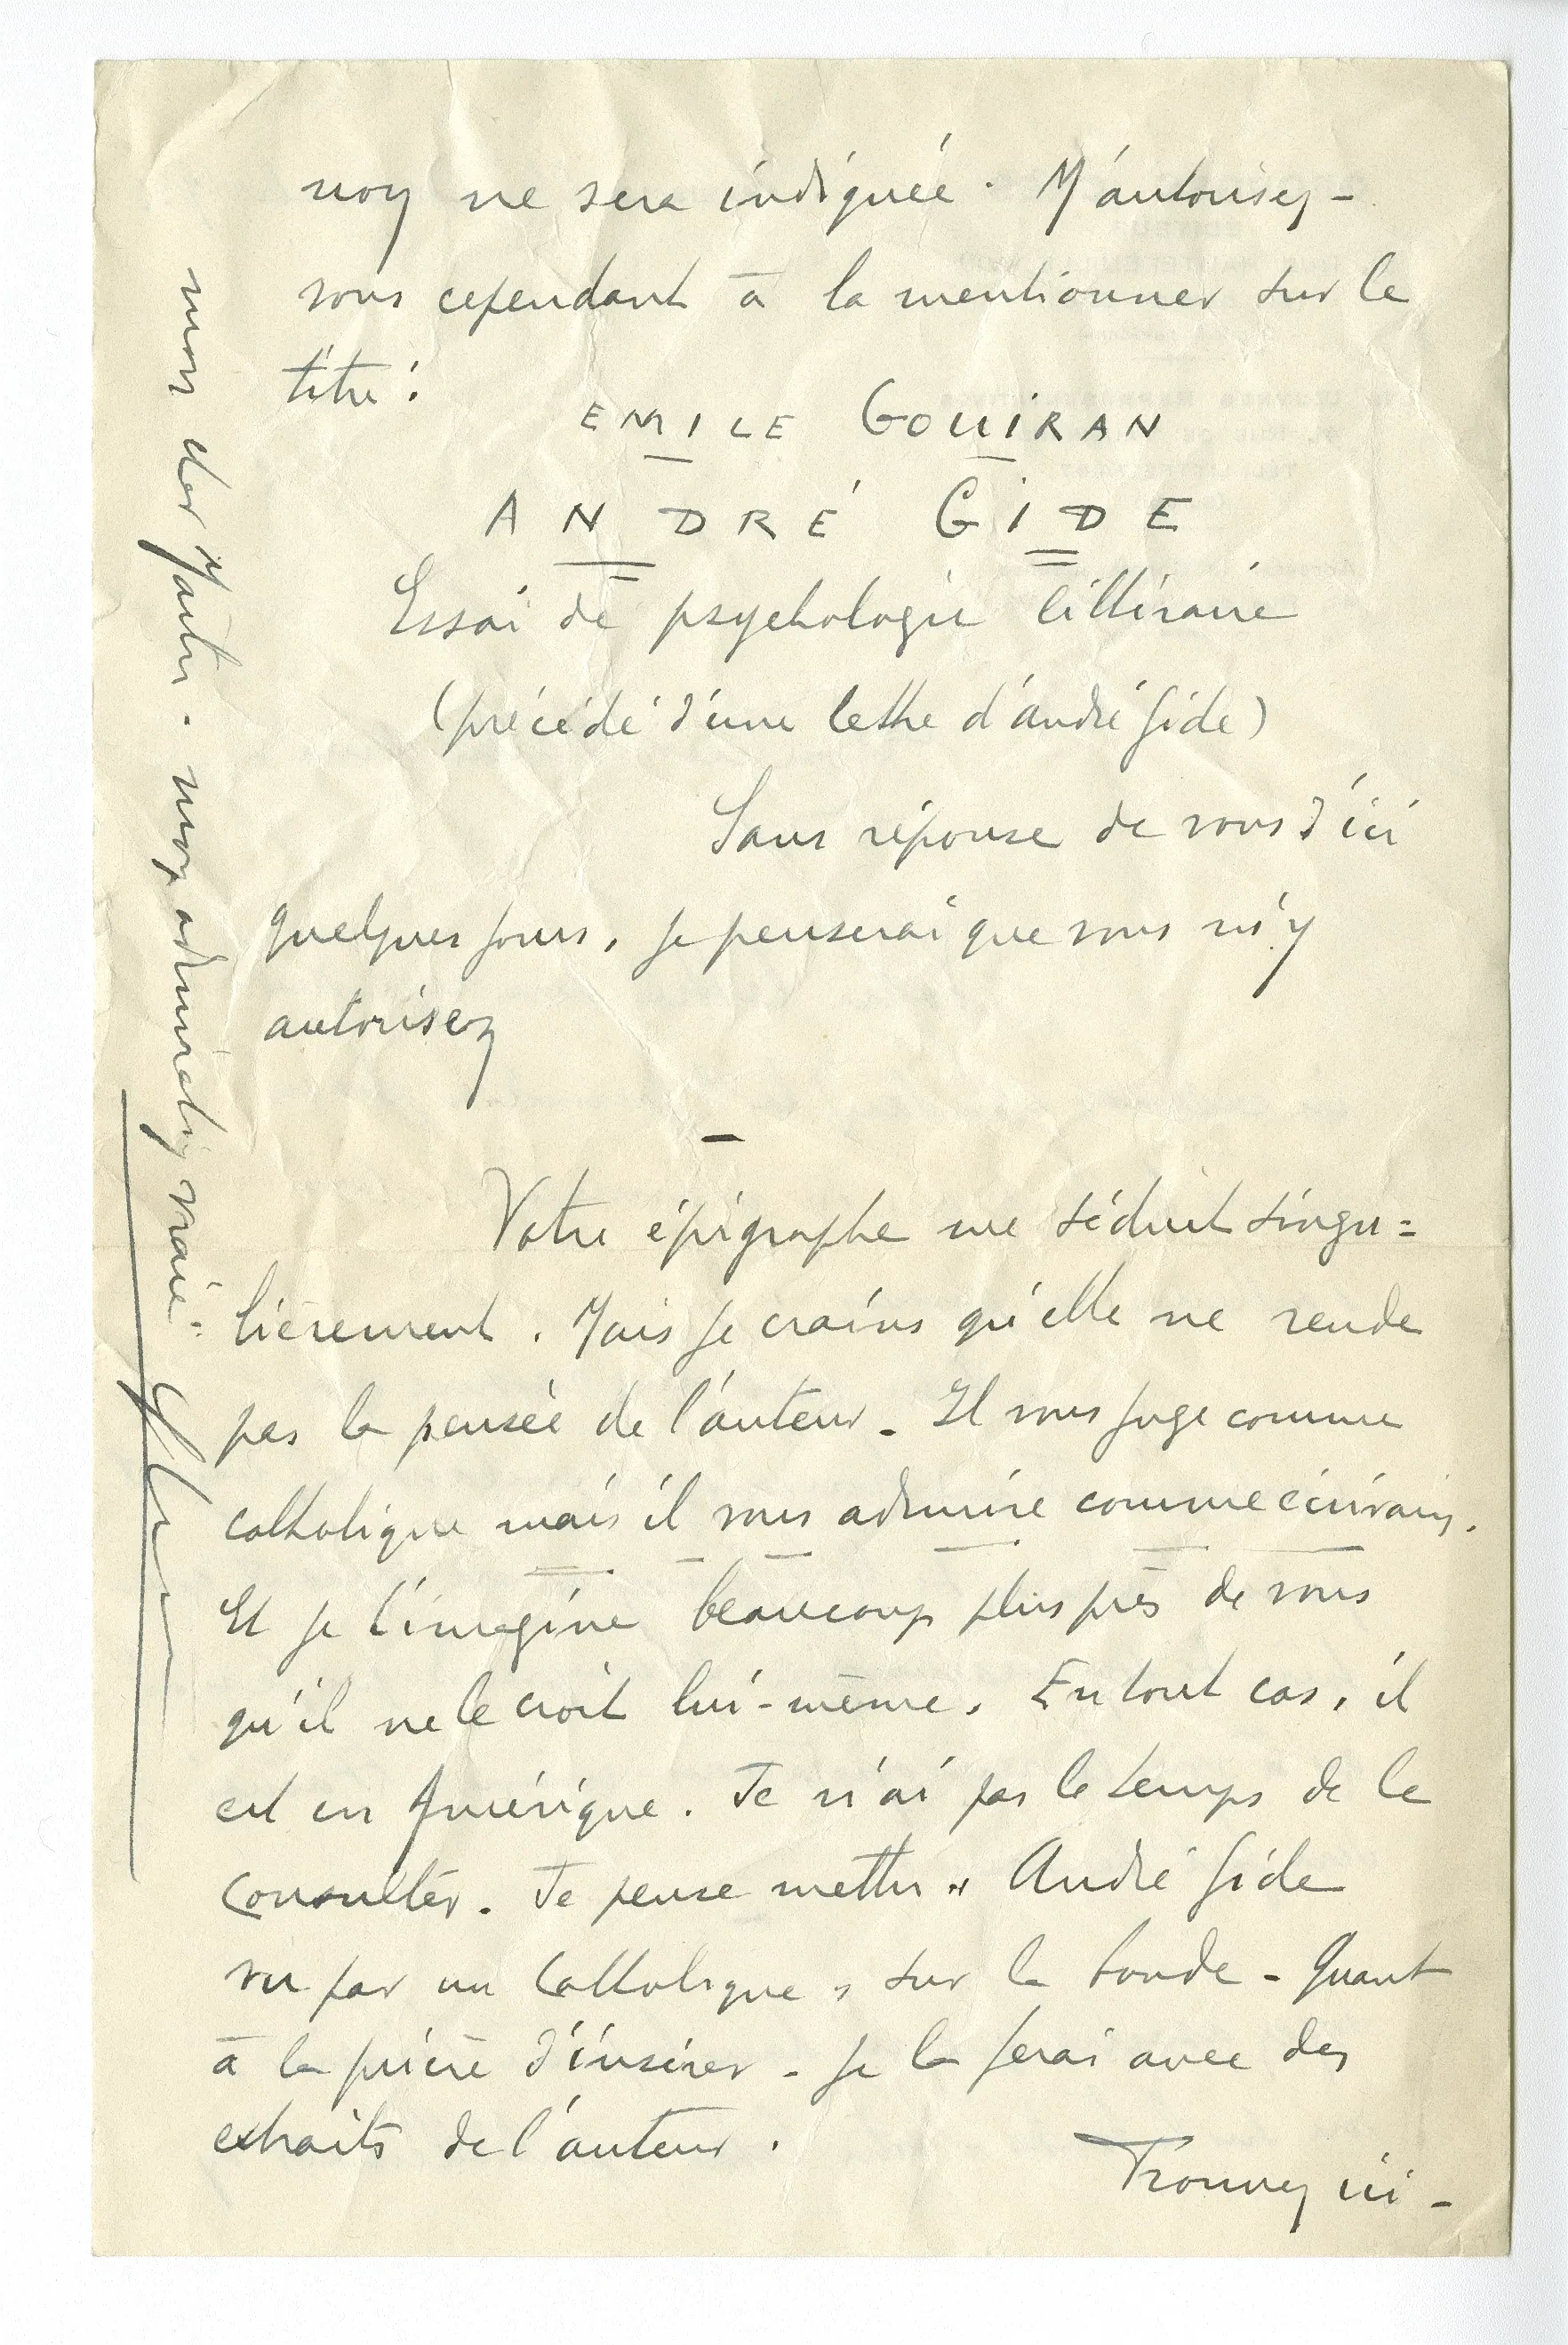 non ne sera indiquée. M'autorisez-
vous cependant à la mentionner sur le
titre :
EMILE GOUIRAN
ANDRÉ GIDE
Essai de psychologie littéraire
(précédé d'une lettre d'André Gide)
Sans réponse de vous d'ici
quelques jours, je penserai que vous m'y
autorisez
—
Votre épigraphe me séduit singu=
lièrement. Mais je crains qu'elle ne rende
pas la pensée de l'auteur. Il vous juge comme
catholique mais il vous admire comme écrivain.
Et je l'imagine beaucoup plus près de vous
qu'il ne le croit lui-même. En tout cas, il
est en Amérique. Je n'ai pas le temps de le
consulter. Je pense mettre « André Gide
vu par un Catholique » sur la bande - Quant
à la prière d'insérer - je la ferai avec des
extraits de l'auteur.
Trouvez ici -
mon cher Maître - mon admiration vraie.